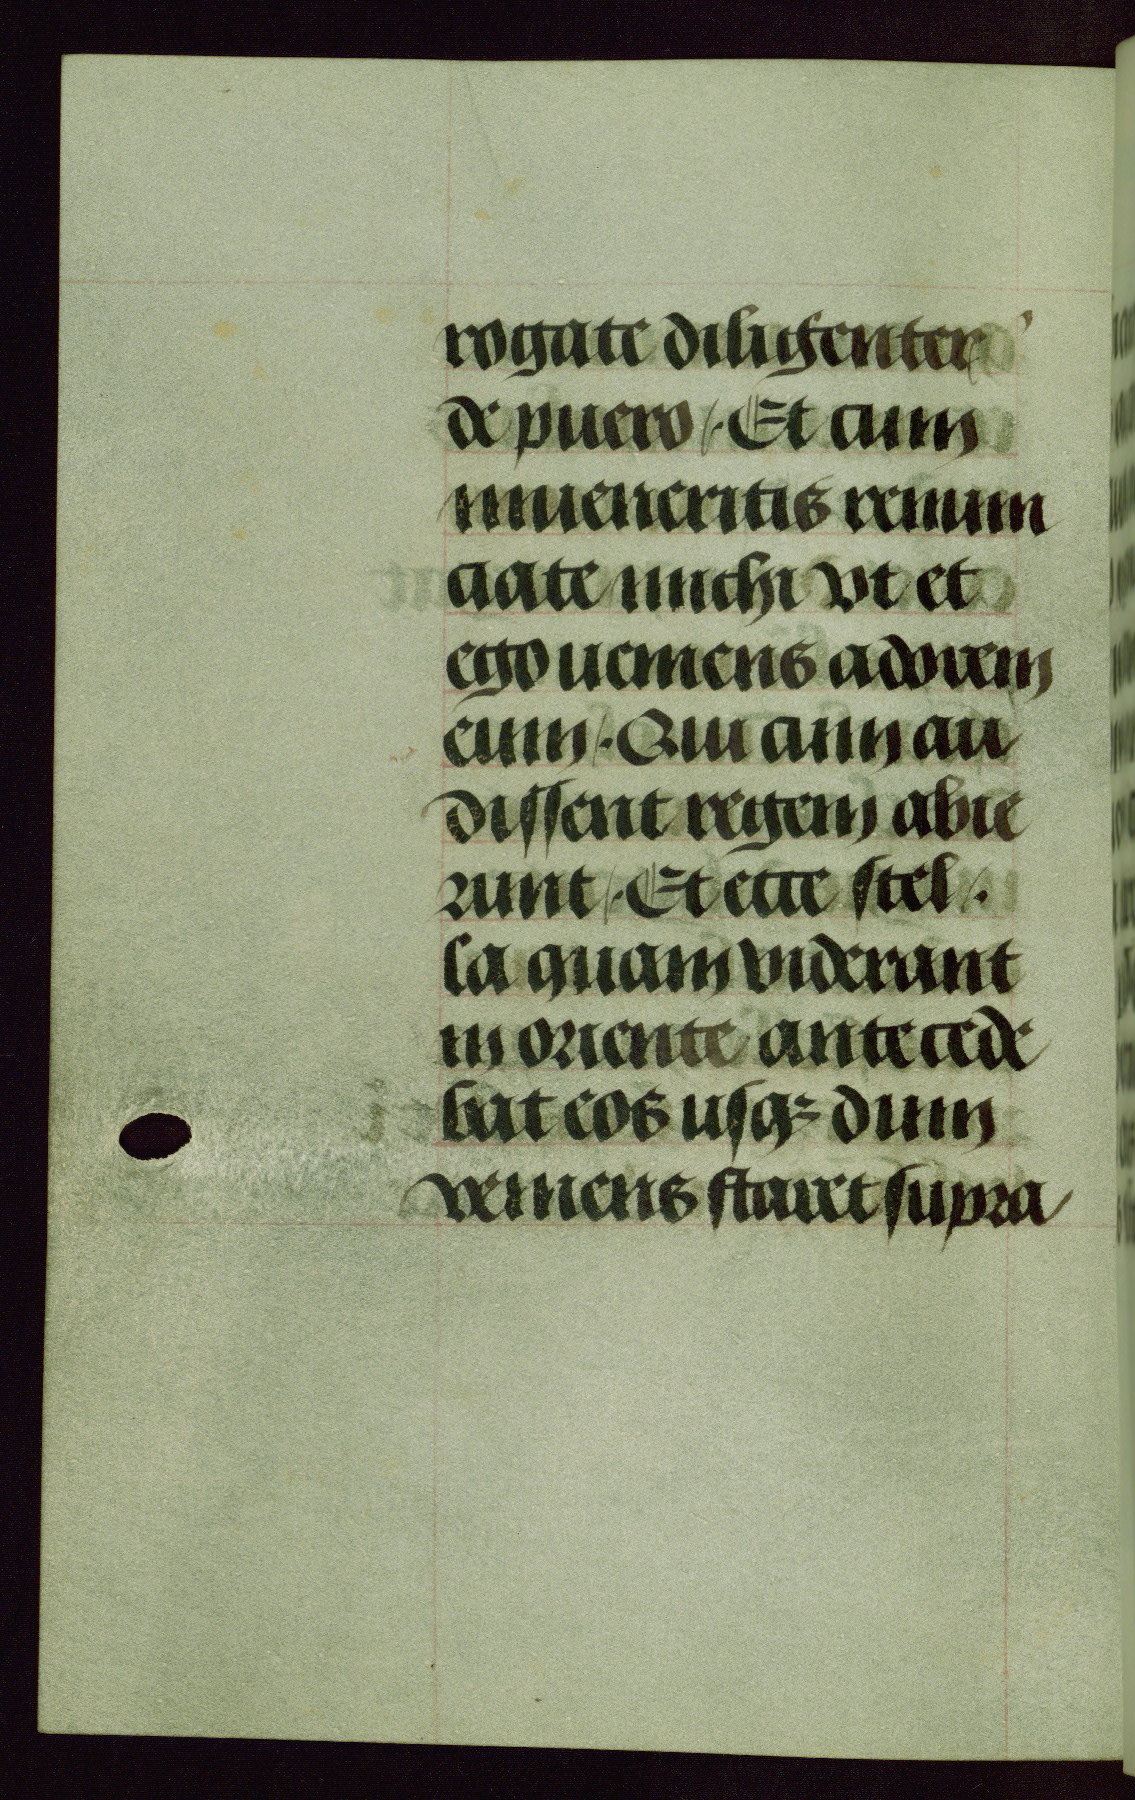 rogate diligenter
de puero /. Et cum
inueneritis renun
ciate michi vt et
ego ueniens adorem
eum /. Qui cum au
dissent regem abie
runt /. Et ecce stel /.
la quam viderant
in oriente antecede
bat eos usqꝫ dum
veniens staret supra